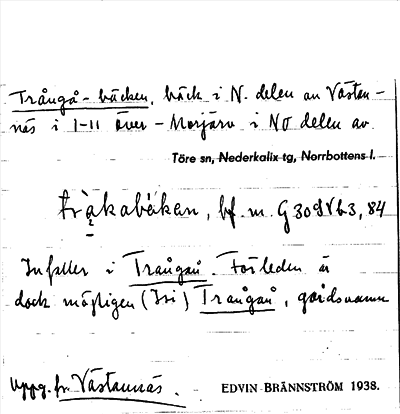 Trångå-bäcken, bäck i N. delen av Västan-
näs i 1-11 över-Morjärv i NO delen av
Töre sn, Nederkalix tg, Norrbottens l.
bf. m. G 309 Vb3, 84
Infaller i Trångån. Förleden är
dock möjligen (Isi) Trångån, gårdsnamn
Uppg. fr. Västannäs.
EDVIN BRÄNNSTRÖM 1938.